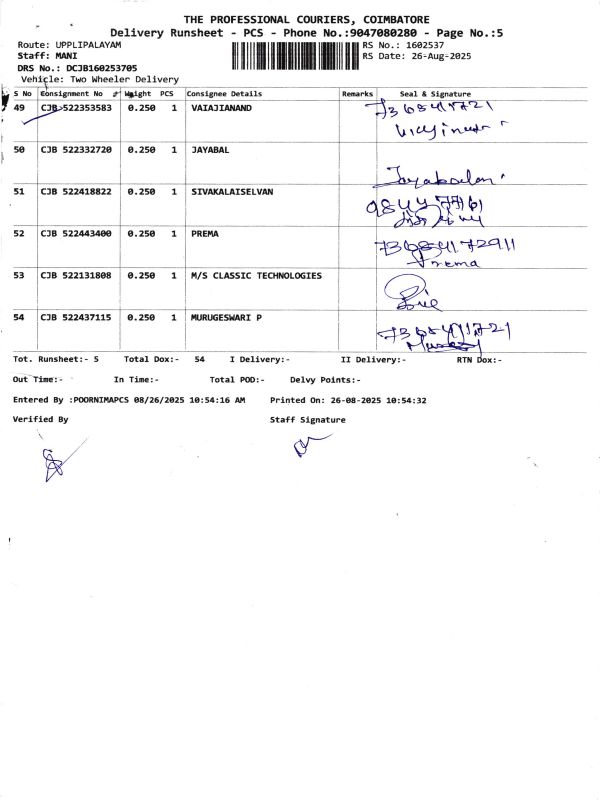 THE PROFESSIONAL COURIERS, COIMBATORE
Delivery Runsheet - PCS - Phone No.:9047080280 - Page No.:5
Route: UPPLIPALAYAM RS No.: 1602537
Staff: MANI RS Date: 26-Aug-2025
DRS No.: DCJB160253705
Vehicle: Two Wheeler Delivery
S No Consignment No # Weight PCS Consignee Details Remarks Seal & Signature
49 CJB 522353583 0.250 1 VAIAJIANAND
50 CJB 522332720 0.250 1 JAYABAL
51 CJB 522418822 0.250 1 SIVAKALAISELVAN
52 CJB 522443400 0.250 1 PREMA
Prema
53 CJB 522131808 0.250 1 M/S CLASSIC TECHNOLOGIES
54 CJB 522437115 0.250 1 MURUGESWARI P
Tot. Runsheet:- 5 Total Dox:- 54 I Delivery:- II Delivery:- RTN Dox:-
Out Time:- In Time:- Total POD:- Delvy Points:-
Entered By :POORNIMAPCS 08/26/2025 10:54:16 AM Printed On: 26-08-2025 10:54:32
Verified By Staff Signature